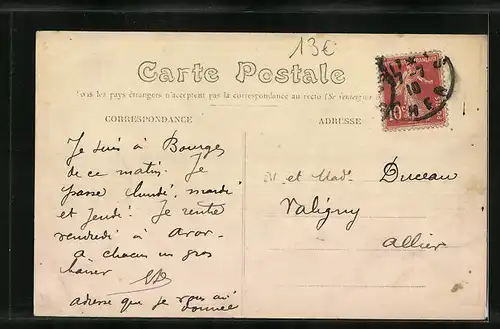 13€
Carte Postale
Tous les pays étrangers n'acceptent pas la correspondance au recto (Se renseigner
CORRESPONDANCE
ADRESSE
Je suis à Bourges
de ce matin. Je
passe lundi, mardi
et jeudi. Je rentre
vendredi à Avor.
A chacun un gros
baiser
adresse que je vous ai
donnée
M. et Mad. Duceau
Valigny
Allier
10